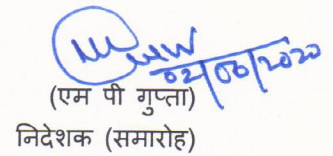 02/06/2020
(एम पी गुप्ता)
निदेशक (समारोह)